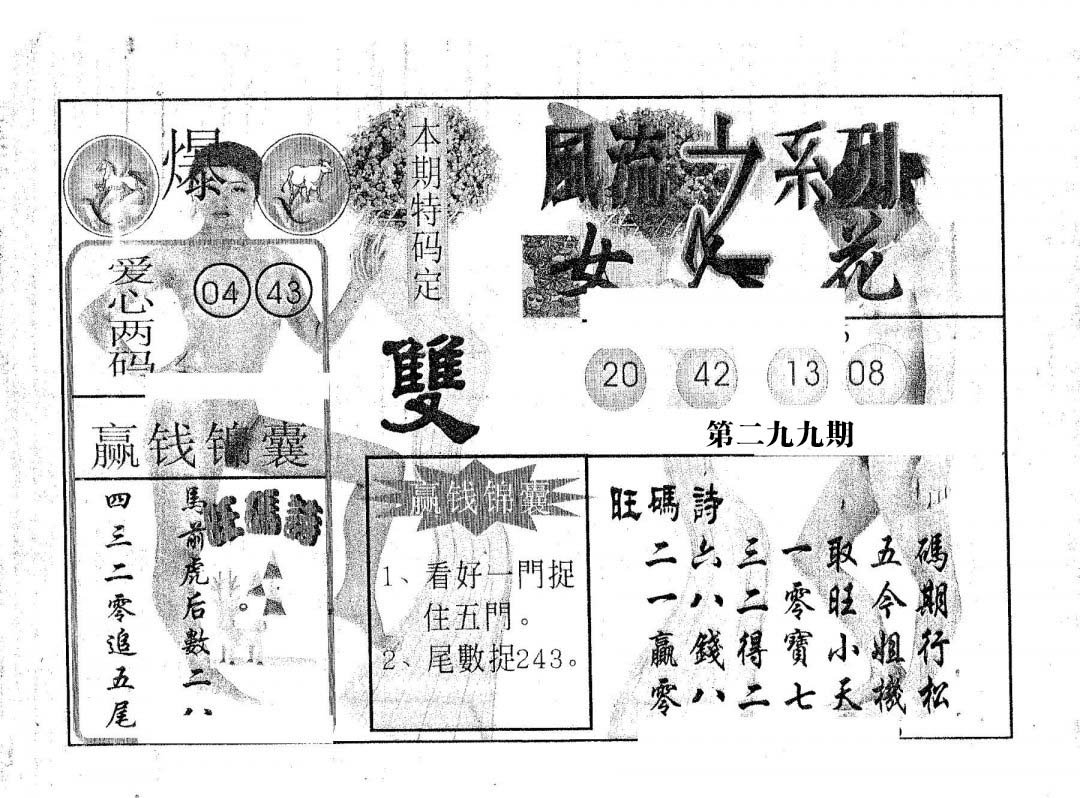 爆
爱心两码
04 43
赢钱锦囊
旺碼詩
馬前虎后數二八
四三二零追五尾
本期特码定
雙
赢钱锦囊
1、看好一門捉
住五門。
2、尾數捉243。
風流之系列
女人花
20 42 13 08
第二九九期
旺碼詩
二六三一取五碼
一八二零旺今期
贏錢得寶小姐行
零八二七天機松